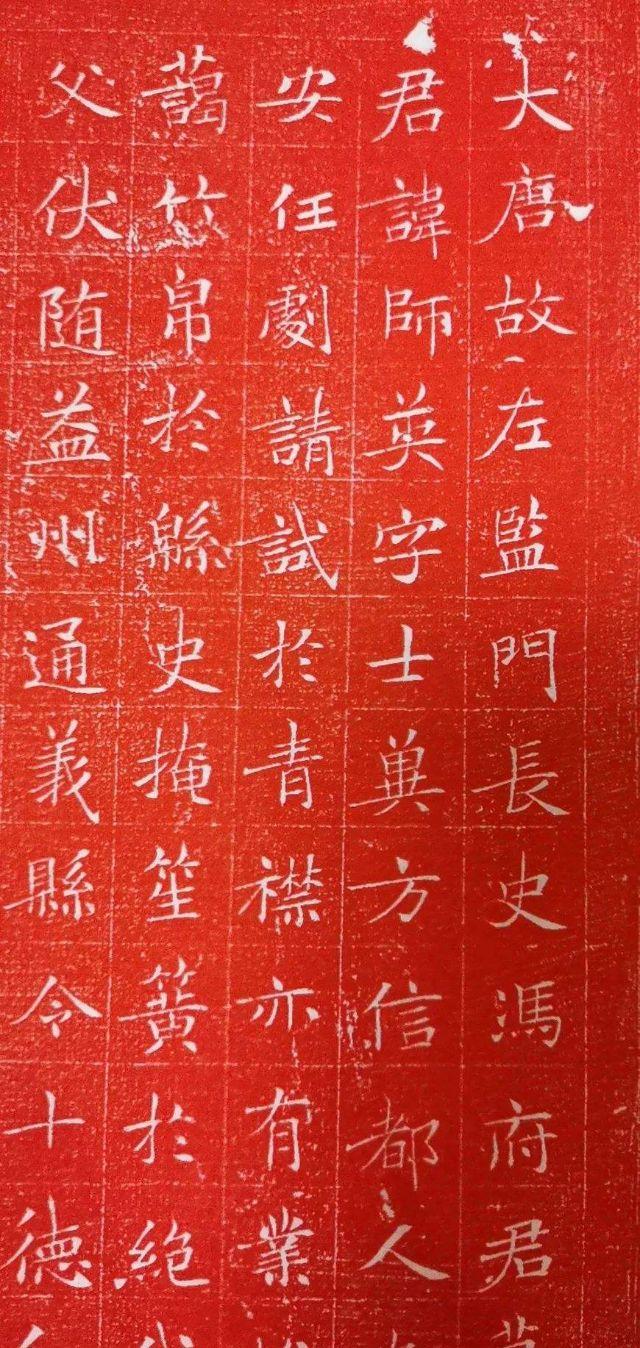 大唐故左監門長史馮府君
君諱師英字士冀方信都人
安任劇請試於青襟亦有業
藹竹帛於緜史掩笙簧於絶
父伏随益州通義縣令十德